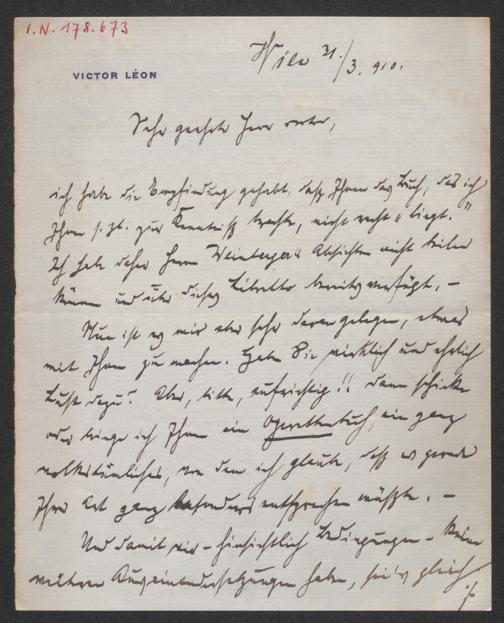 I.N. 178.673
VICTOR LÉON
Wien 31./3. 910.
Sehr geehrter Herr
ich habe die Empfindung gehabt, dass Ihnen das Buch, das ich
Ihnen s. Zt. zur Kenntniß brachte, nicht recht „liegt."
Ich habe daher Herrn Weinbergers Absichten nicht teilen
können und über dieses Libretto bereits verfügt, –
Nun ist es mir aber sehr daran gelegen, etwas
mit Ihnen zu machen. Haben Sie wirklich und ehrlich
Lust dazu? Aber, bitte, aufrichtig!! Dann schicke
oder bringe ich Ihnen ein Operettenbuch, ein ganz
volkstümliches, von dem ich glaube, daß es gerade
Ihrer Art ganz besonders entsprechen müßte. –
Und damit wir – hinsichtlich Bedingungen – keine
weiteren Auseinandersetzungen haben, sei's gleich